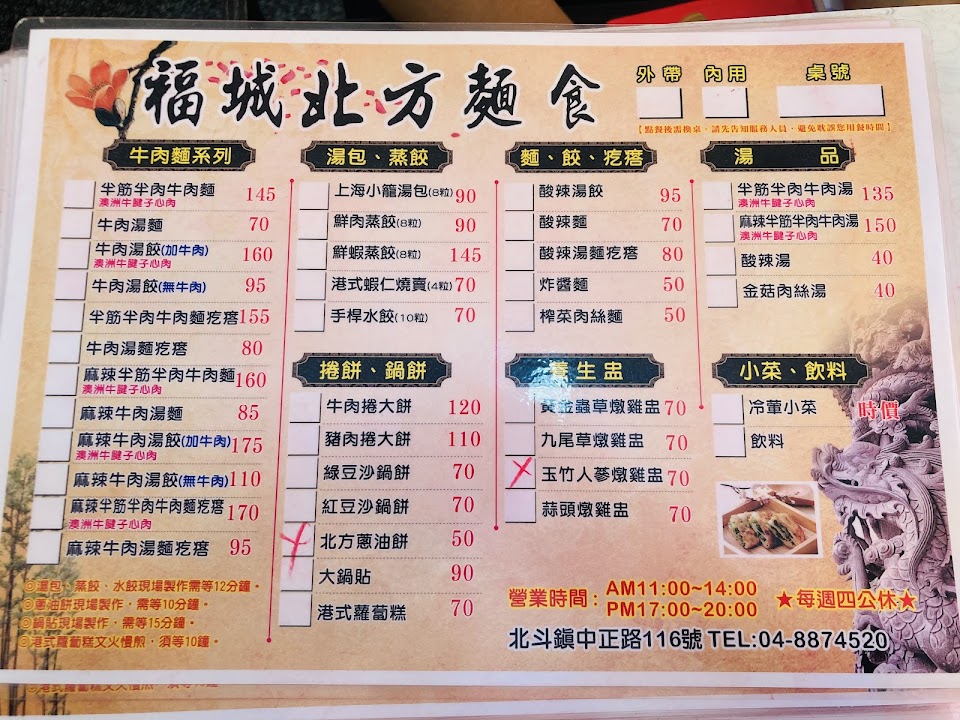 福城北方麵食
外帶 內用 桌號
【點餐後需換桌，請先告知服務人員，避免耽誤您用餐時間】
牛肉麵系列
半筋半肉牛肉麵 145
澳洲牛腱子心肉
牛肉湯麵 70
牛肉湯餃(加牛肉) 160
澳洲牛腱子心肉
牛肉湯餃(無牛肉) 95
半筋半肉牛肉麵疙瘩 155
牛肉湯麵疙瘩 80
麻辣半筋半肉牛肉麵 160
澳洲牛腱子心肉
麻辣牛肉湯麵 85
麻辣牛肉湯餃(加牛肉) 175
澳洲牛腱子心肉
麻辣牛肉湯餃(無牛肉) 110
麻辣半筋半肉牛肉麵疙瘩 170
澳洲牛腱子心肉
麻辣牛肉湯麵疙瘩 95
◎湯包、蒸餃、水餃現場製作需等12分鐘。
◎蔥油餅現場製作，需等10分鐘。
◎鍋貼現場製作，需等15分鐘。
◎港式蘿蔔糕文火慢煎，須等10鐘。
湯包、蒸餃
上海小籠湯包(8粒) 90
鮮肉蒸餃(8粒) 90
鮮蝦蒸餃(8粒) 145
港式蝦仁燒賣(4粒) 70
手桿水餃(10粒) 70
捲餅、鍋餅
牛肉捲大餅 120
豬肉捲大餅 110
綠豆沙鍋餅 70
紅豆沙鍋餅 70
北方蔥油餅 50
大鍋貼 90
港式蘿蔔糕 70
麵、餃、疙瘩
酸辣湯餃 95
酸辣麵 70
酸辣湯麵疙瘩 80
炸醬麵 50
榨菜肉絲麵 50
養生盅
黃金蟲草燉雞盅 70
九尾草燉雞盅 70
玉竹人蔘燉雞盅 70
蒜頭燉雞盅 70
湯 品
半筋半肉牛肉湯 135
澳洲牛腱子心肉
麻辣半筋半肉牛肉湯 150
澳洲牛腱子心肉
酸辣湯 40
金菇肉絲湯 40
小菜、飲料
冷葷小菜 時價
飲料
營業時間：AM11:00~14:00
PM17:00~20:00
★每週四公休★
北斗鎮中正路116號 TEL:04-8874520